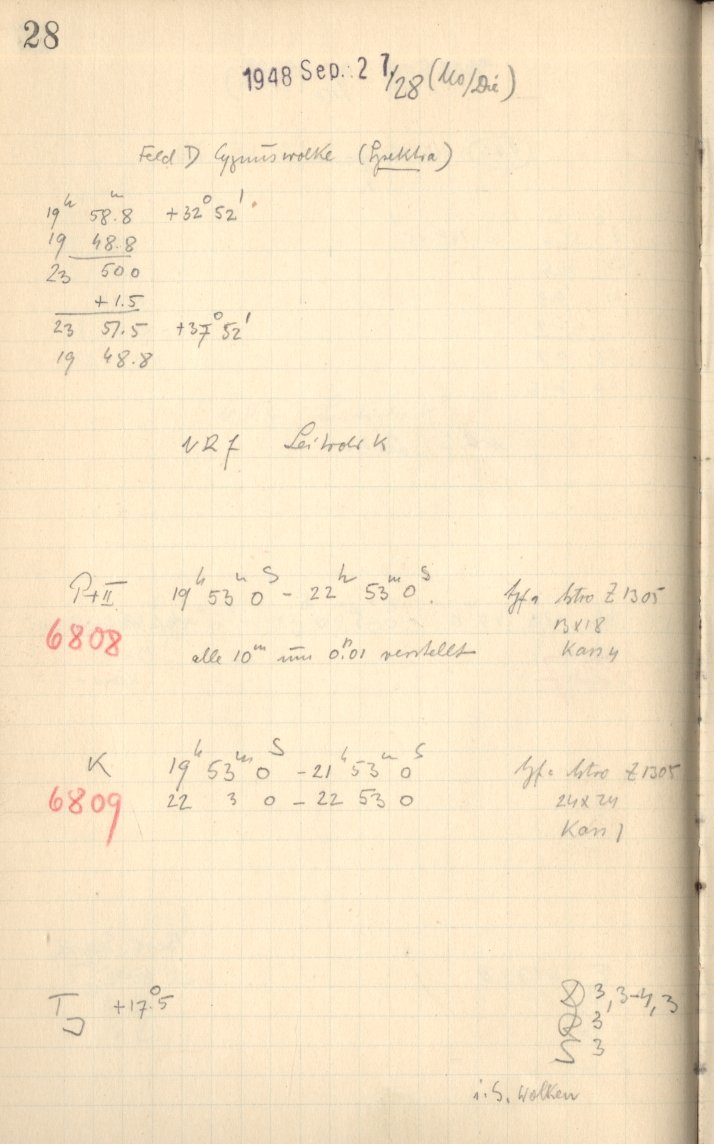 28
1948 Sep. 27/28 (Mo/Die)
Feld D Cygnuswolke (Spektra)
19ʰ 58.ᵐ8 +32° 52'
19 48.8
23 50 0
+1.5
23 51.5 +37° 52'
19 48.8
K
P+II 19ʰ 53ᵐ 0ˢ – 22ʰ 53ᵐ 0ˢ Agfa Astro Z 1305
6808 13x18
alle 10ᵐ um 0.01 verstellt Kass 4
K 19ʰ 53ᵐ 0ˢ – 21ʰ 53ᵐ 0ˢ Agfa Astro Z 1305
6809 22 3 0 – 22 53 0 24x24
Kass 1
T +17.°5
3, 3-4, 3
3
3
i.S. Wolken